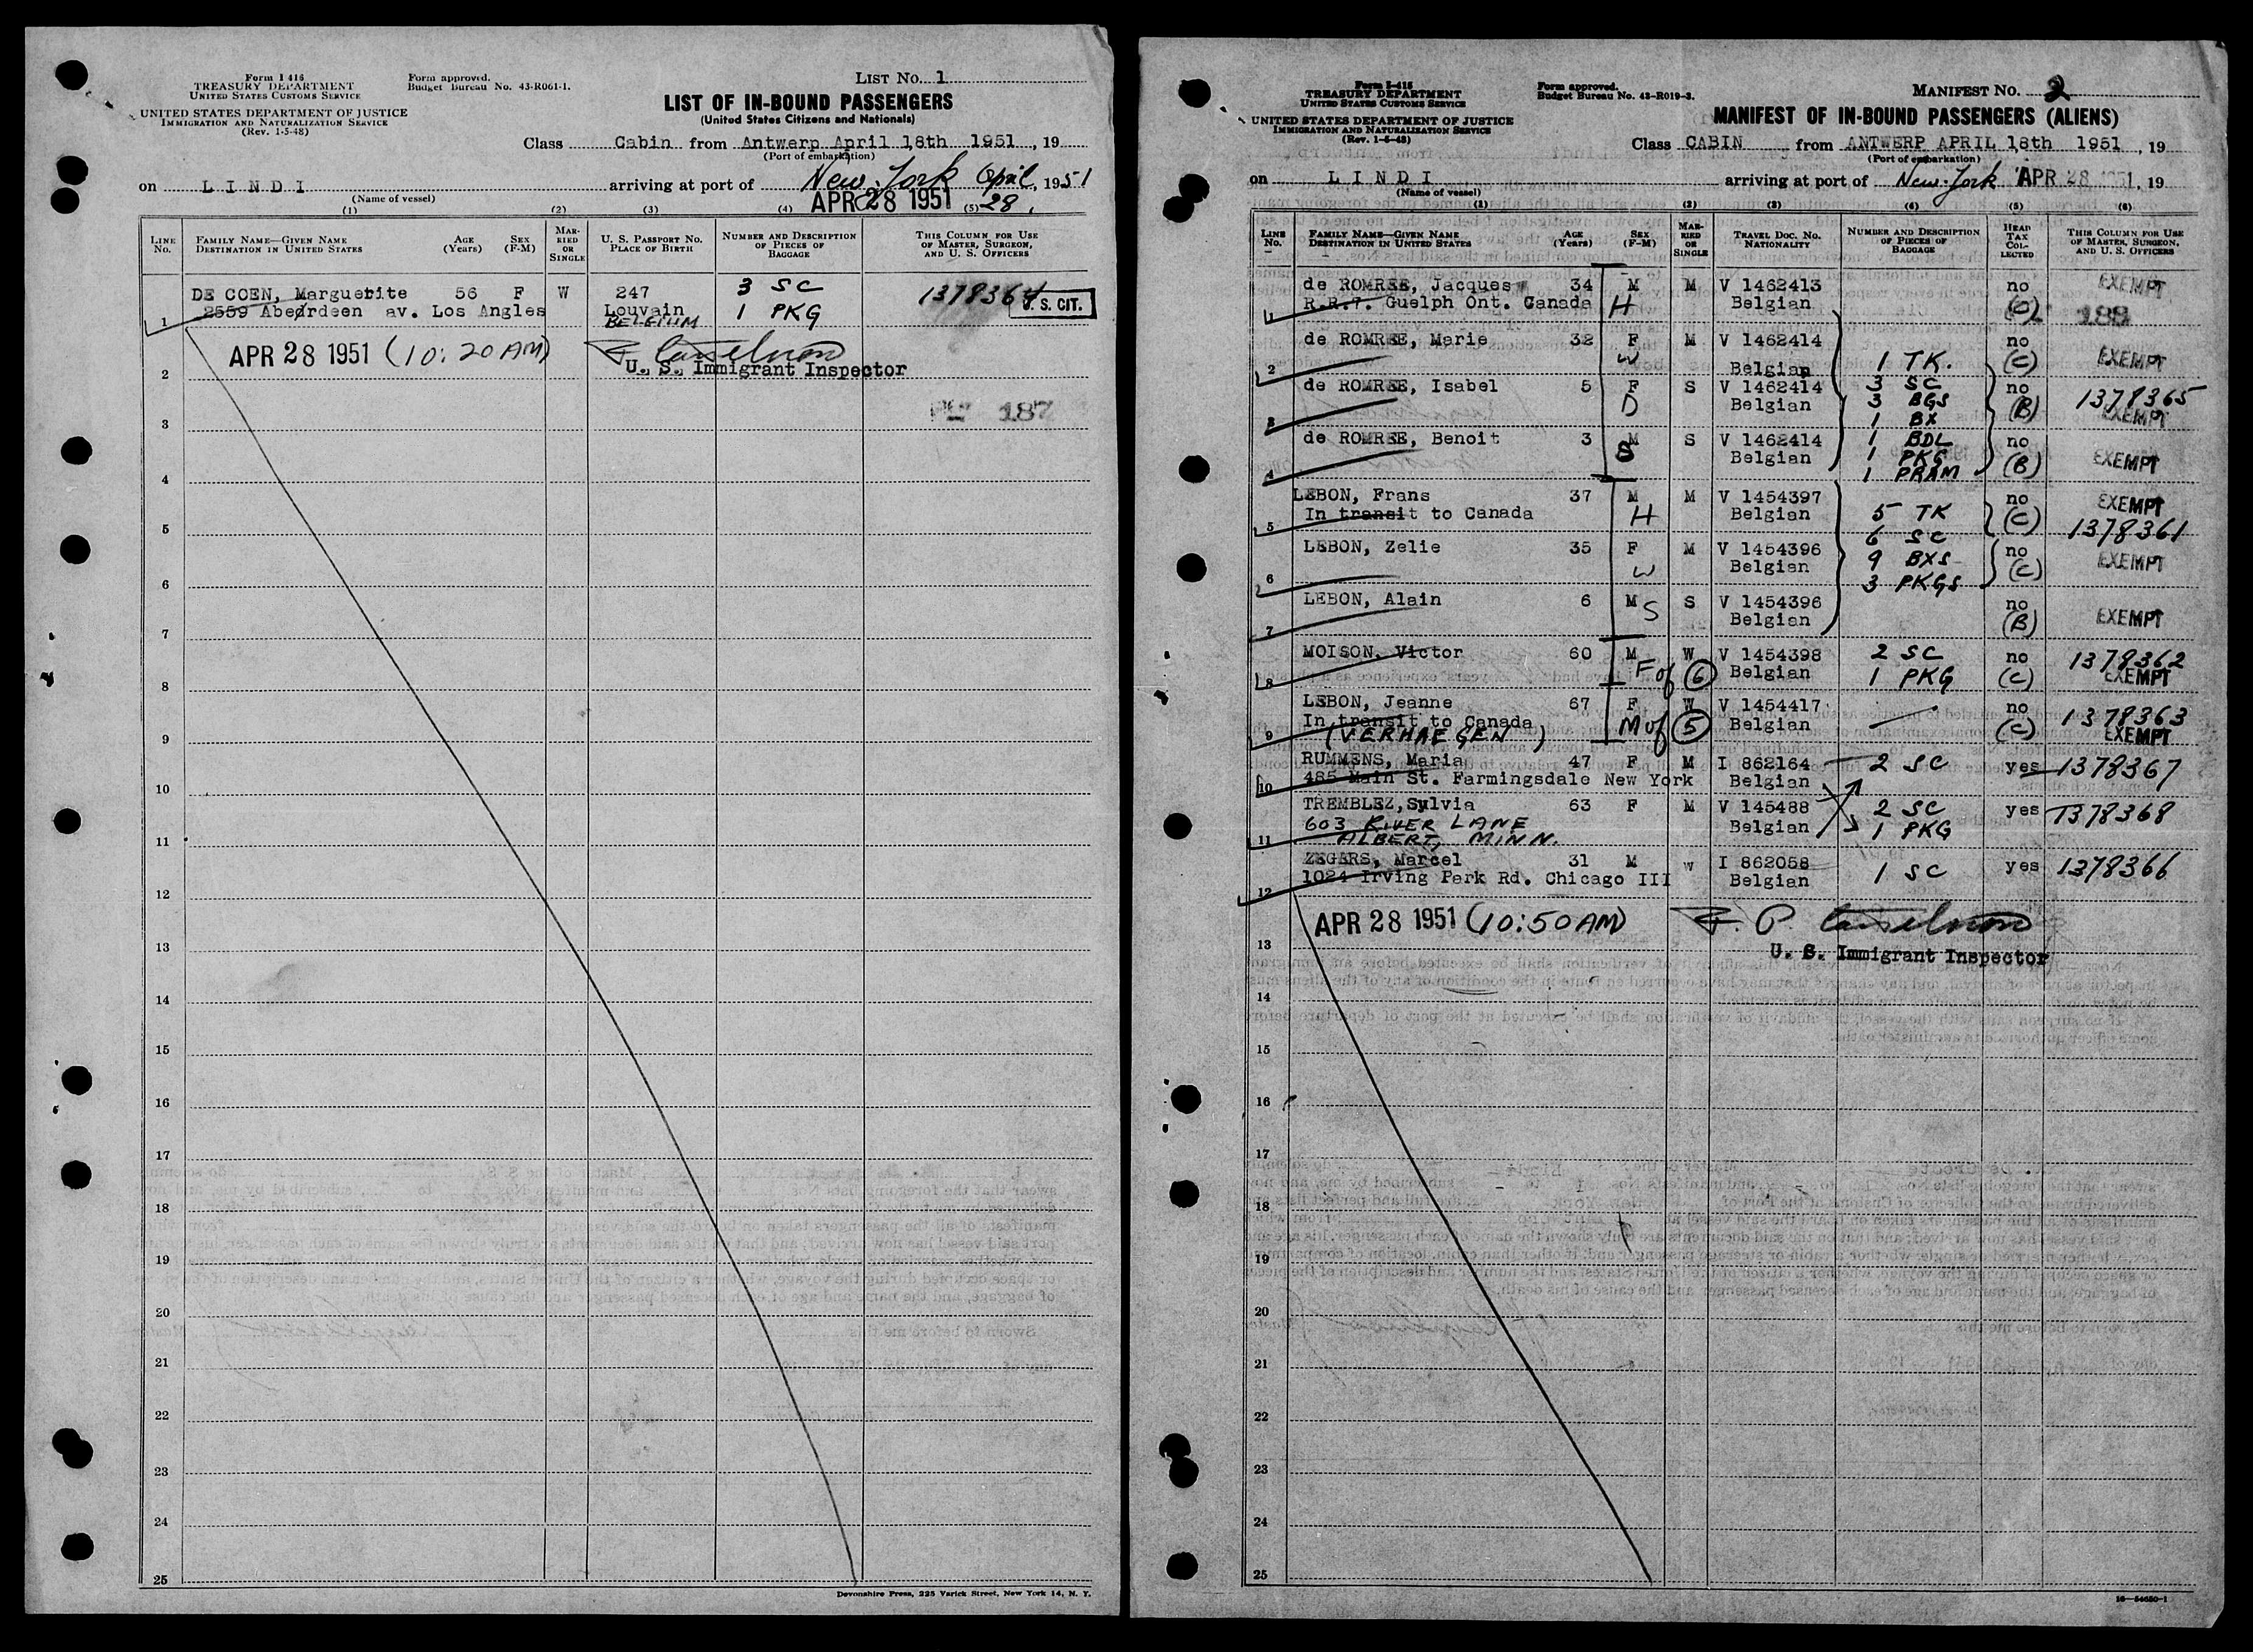 Form I 416
TREASURY DEPARTMENT
UNITED STATES CUSTOMS SERVICE
UNITED STATES DEPARTMENT OF JUSTICE
IMMIGRATION AND NATURALIZATION SERVICE
(Rev. 1-5-48)
Form approved.
Budget Bureau No. 43-R061-1.
LIST NO. 1
LIST OF IN-BOUND PASSENGERS
(United States Citizens and Nationals)
Class Cabin from Antwerp April 18th 1951, 19
(Port of embarkation)
on LINDI arriving at port of New York April, 1951
(Name of vessel)
APR 28 1951 28,
(1) (2) (3) (4) (5)
LINE NO. FAMILY NAME—GIVEN NAME DESTINATION IN UNITED STATES AGE (Years) SEX (F-M) MARRIED OR SINGLE U. S. PASSPORT NO. PLACE OF BIRTH NUMBER AND DESCRIPTION OF PIECES OF BAGGAGE THIS COLUMN FOR USE OF MASTER, SURGEON, AND U. S. OFFICERS
DE COEN, Marguerite 56 F W 247 3 SC 1378364 U. S. CIT.
1 2559 Aberdeen av. Los Angles Louvain BELGIUM 1 PKG
APR 28 1951 (10:20 AM)
U. S. Immigrant Inspector
2
187
3
4
5
6
7
8
9
10
11
12
13
14
15
16
17
18
19
20
21
22
23
24
25
Devonshire Press, 225 Varick Street, New York 14, N. Y.
Form I-415
TREASURY DEPARTMENT
UNITED STATES CUSTOMS SERVICE
UNITED STATES DEPARTMENT OF JUSTICE
IMMIGRATION AND NATURALIZATION SERVICE
(Rev. 1-5-48)
Form approved.
Budget Bureau No. 43-R019-3.
MANIFEST NO. 2
MANIFEST OF IN-BOUND PASSENGERS (ALIENS)
Class CABIN from ANTWERP APRIL 18th 1951, 19
(Port of embarkation)
on LINDI arriving at port of New York APR 28 1951, 19
(Name of vessel)
(1) (2) (3) (4) (5) (6)
LINE NO. FAMILY NAME—GIVEN NAME DESTINATION IN UNITED STATES AGE (Years) SEX (F-M) MARRIED OR SINGLE TRAVEL DOC. NO. NATIONALITY NUMBER AND DESCRIPTION OF PIECES OF BAGGAGE HEAD TAX COLLECTED THIS COLUMN FOR USE OF MASTER, SURGEON, AND U. S. OFFICERS
de ROMREE, Jacques 34 M M V 1462413 no EXEMPT
1 R.R.7. Guelph Ont. Canada H Belgian (C) 188
de ROMREE, Marie 32 F M V 1462414 no
2 W Belgian 1 TK. (C) EXEMPT
de ROMREE, Isabel 5 F S V 1462414 3 SC no 1378365
3 D Belgian 3 BGS (B) EXEMPT
1 BX
de ROMREE, Benoit 3 M S V 1462414 1 BDL no
4 S Belgian 1 PKG (B) EXEMPT
1 PRAM
LEBON, Frans 37 M M V 1454397 no EXEMPT
5 In transit to Canada H Belgian 5 TK (C) 1378361
6 SC
LEBON, Zelie 35 F M V 1454396 9 BXS no EXEMPT
6 W Belgian 3 PKGS (C)
LEBON, Alain 6 M S V 1454396 no EXEMPT
7 S Belgian (B)
MOISON, Victor 60 M W V 1454398 2 SC no 1378362
8 F of 6 Belgian 1 PKG (C) EXEMPT
LEBON, Jeanne 67 F W V 1454417 no 1378363
In transit to Canada M of 5 Belgian (C) EXEMPT
9 (VERHAEGEN)
RUMMENS, Maria 47 F M I 862164 2 SC yes 1378367
10 485 Main St. Farmingsdale New York Belgian
TREMBLEZ, Sylvia 63 F M V 145488 2 SC yes 1378368
603 RIVER LANE Belgian 1 PKG
11 ALBERT, MINN.
ZEGERS, Marcel 31 M W I 862058 1 SC yes 1378366
12 1024 Irving Park Rd. Chicago III Belgian
APR 28 1951 (10:50 AM)
13 U. S. Immigrant Inspector
14
15
16
17
18
19
20
21
22
23
24
25
16—54650-1